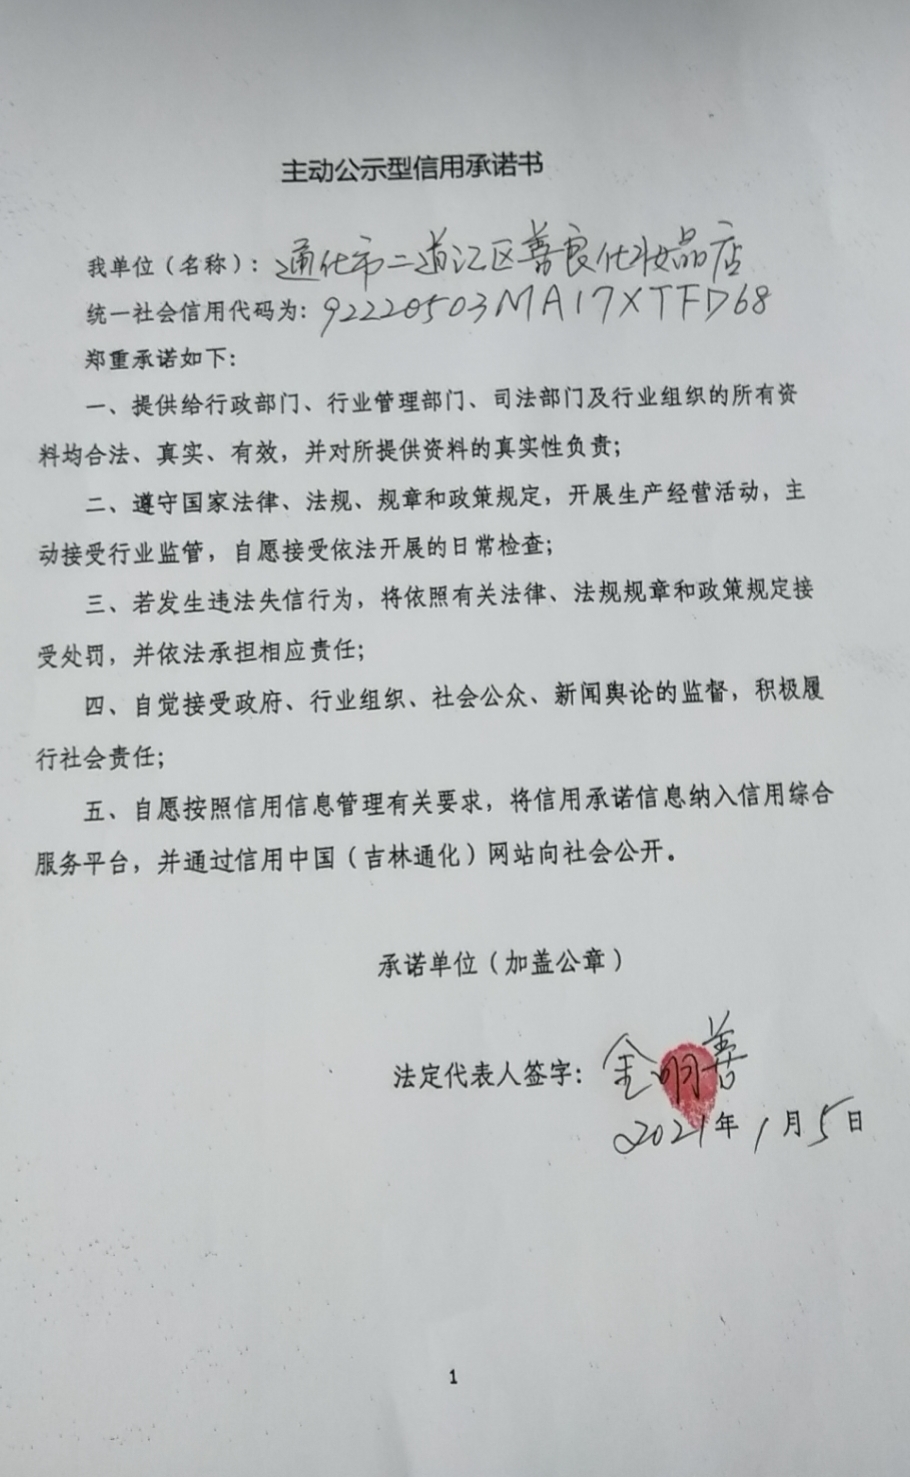 主动公示型信用承诺书
我单位（名称）：通化市二道江区善良化妆品店
统一社会信用代码为：92220503MA17XTFD68
郑重承诺如下：
一、提供给行政部门、行业管理部门、司法部门及行业组织的所有资
料均合法、真实、有效，并对所提供资料的真实性负责；
二、遵守国家法律、法规、规章和政策规定，开展生产经营活动，主
动接受行业监管，自愿接受依法开展的日常检查；
三、若发生违法失信行为，将依照有关法律、法规规章和政策规定接
受处罚，并依法承担相应责任；
四、自觉接受政府、行业组织、社会公众、新闻舆论的监督，积极履
行社会责任；
五、自愿按照信用信息管理有关要求，将信用承诺信息纳入信用综合
服务平台，并通过信用中国（吉林通化）网站向社会公开。
承诺单位（加盖公章）
法定代表人签字：金明善
2021年1月5日
1